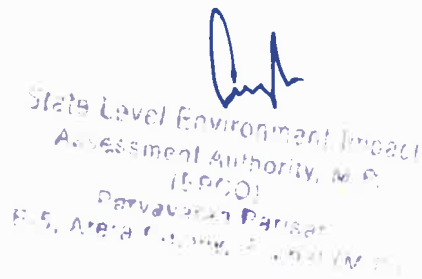 State Level Environment Impact
Assessment Authority, M.P.
(EPCO)
Paryavaran Parisar
E-5, Arera